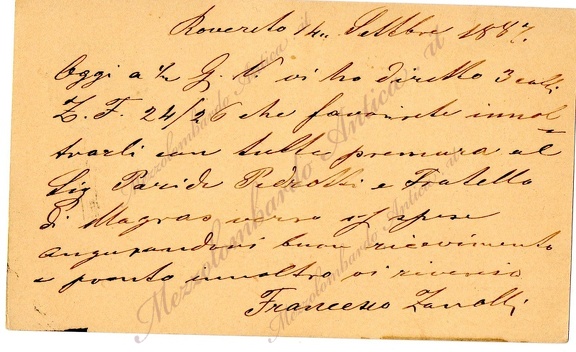 Rovereto 14 Settbre 1887.
Oggi a ½ G. V. vi ho diretto 3 colli
Z. F. 24/26 che favorirete innol=
trarli con tutta premura al
Sig Paride Pedrotti e Fratello
di Magras verso spese
augurandovi buon ricevimento
e pronto innoltro vi riverisco
Francesco Zanolli
Mezzolombardo Antica.it
Mezzolombardo Antica.it
Mezzolombardo Antica.it